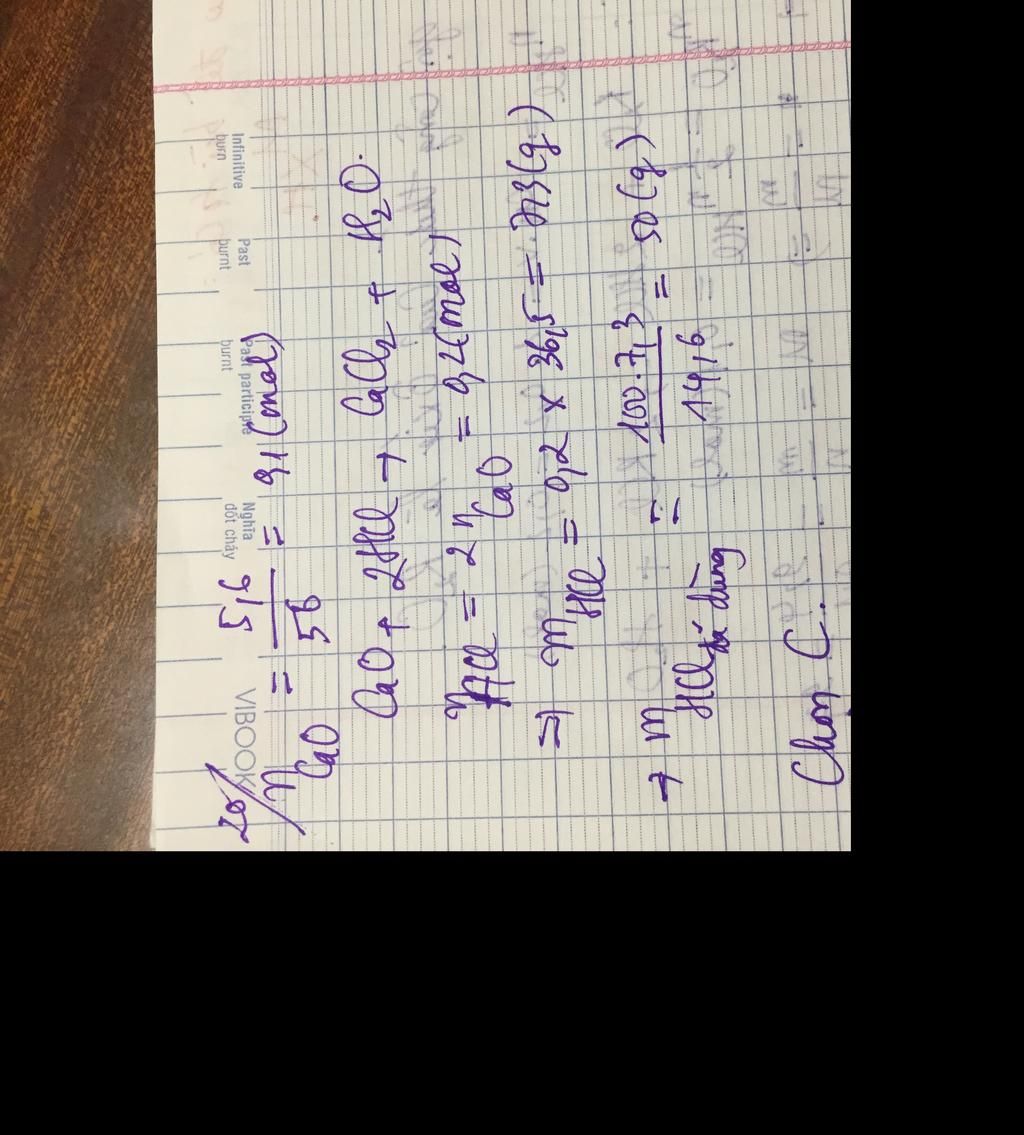 Infinitive Past Past participle Nghĩa
burn burnt burnt đốt cháy
VIBOOK
20/ n CaO = 5,6 / 56 = 0,1 (mol)
CaO + 2HCl → CaCl2 + H2O.
n HCl = 2 n CaO = 0,2 (mol)
=> m HCl = 0,2 x 36,5 = 7,3 (g)
→ m HCl đã dùng = 100.7,3 / 14,6 = 50 (g)
Chọn C.